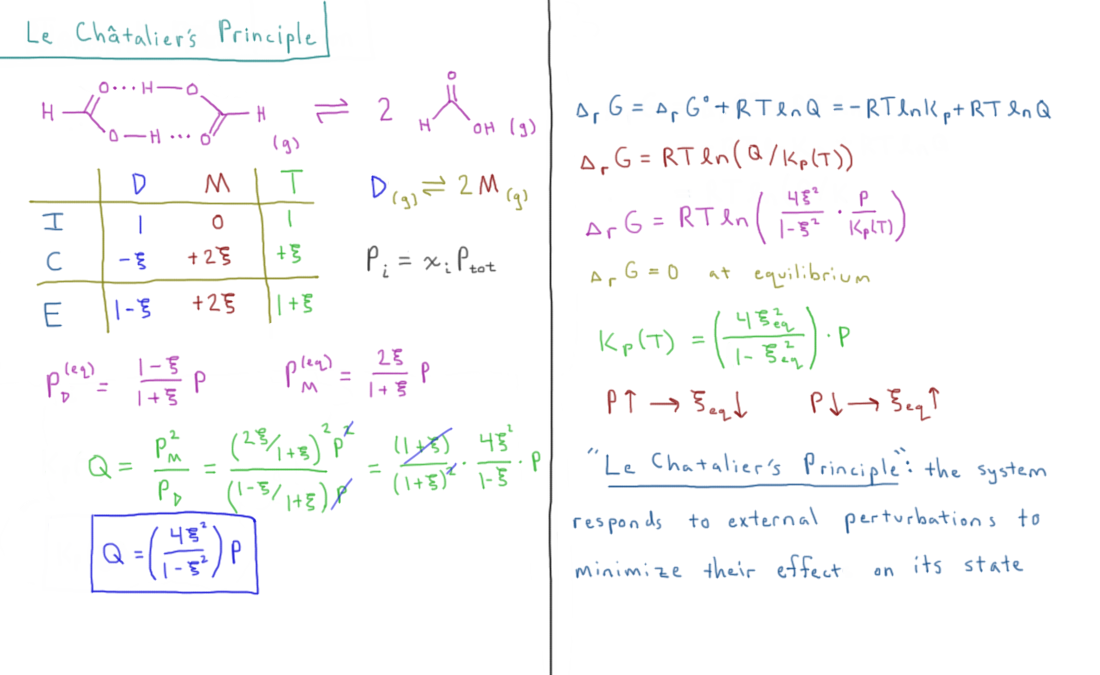 Le Châtalier's Principle
H O···H—O H O—H···O (g) ⇌ 2 O H OH (g)
D M T
I 1 0 1
C -ξ +2ξ +ξ
E 1-ξ +2ξ 1+ξ
D(g) ⇌ 2M(g)
Pᵢ = xᵢ Ptot
P_D^(eq) = (1-ξ)/(1+ξ) P
P_M^(eq) = 2ξ/(1+ξ) P
Q = P_M²/P_D = (2ξ/1+ξ)²P²/(1-ξ/1+ξ)P = (1+ξ)/(1+ξ)² · 4ξ²/1-ξ · P
Q = (4ξ²/1-ξ²) P
ΔᵣG = ΔᵣG° + RT ln Q = -RT ln Kp + RT ln Q
ΔᵣG = RT ln(Q/Kp(T))
ΔᵣG = RT ln(4ξ²/1-ξ² · P/Kp(T))
ΔᵣG = 0 at equilibrium
Kp(T) = (4ξ²eq/1-ξ²eq) · P
P↑ → ξeq↓ P↓ → ξeq↑
"Le Chatalier's Principle": the system
responds to external perturbations to
minimize their effect on its state